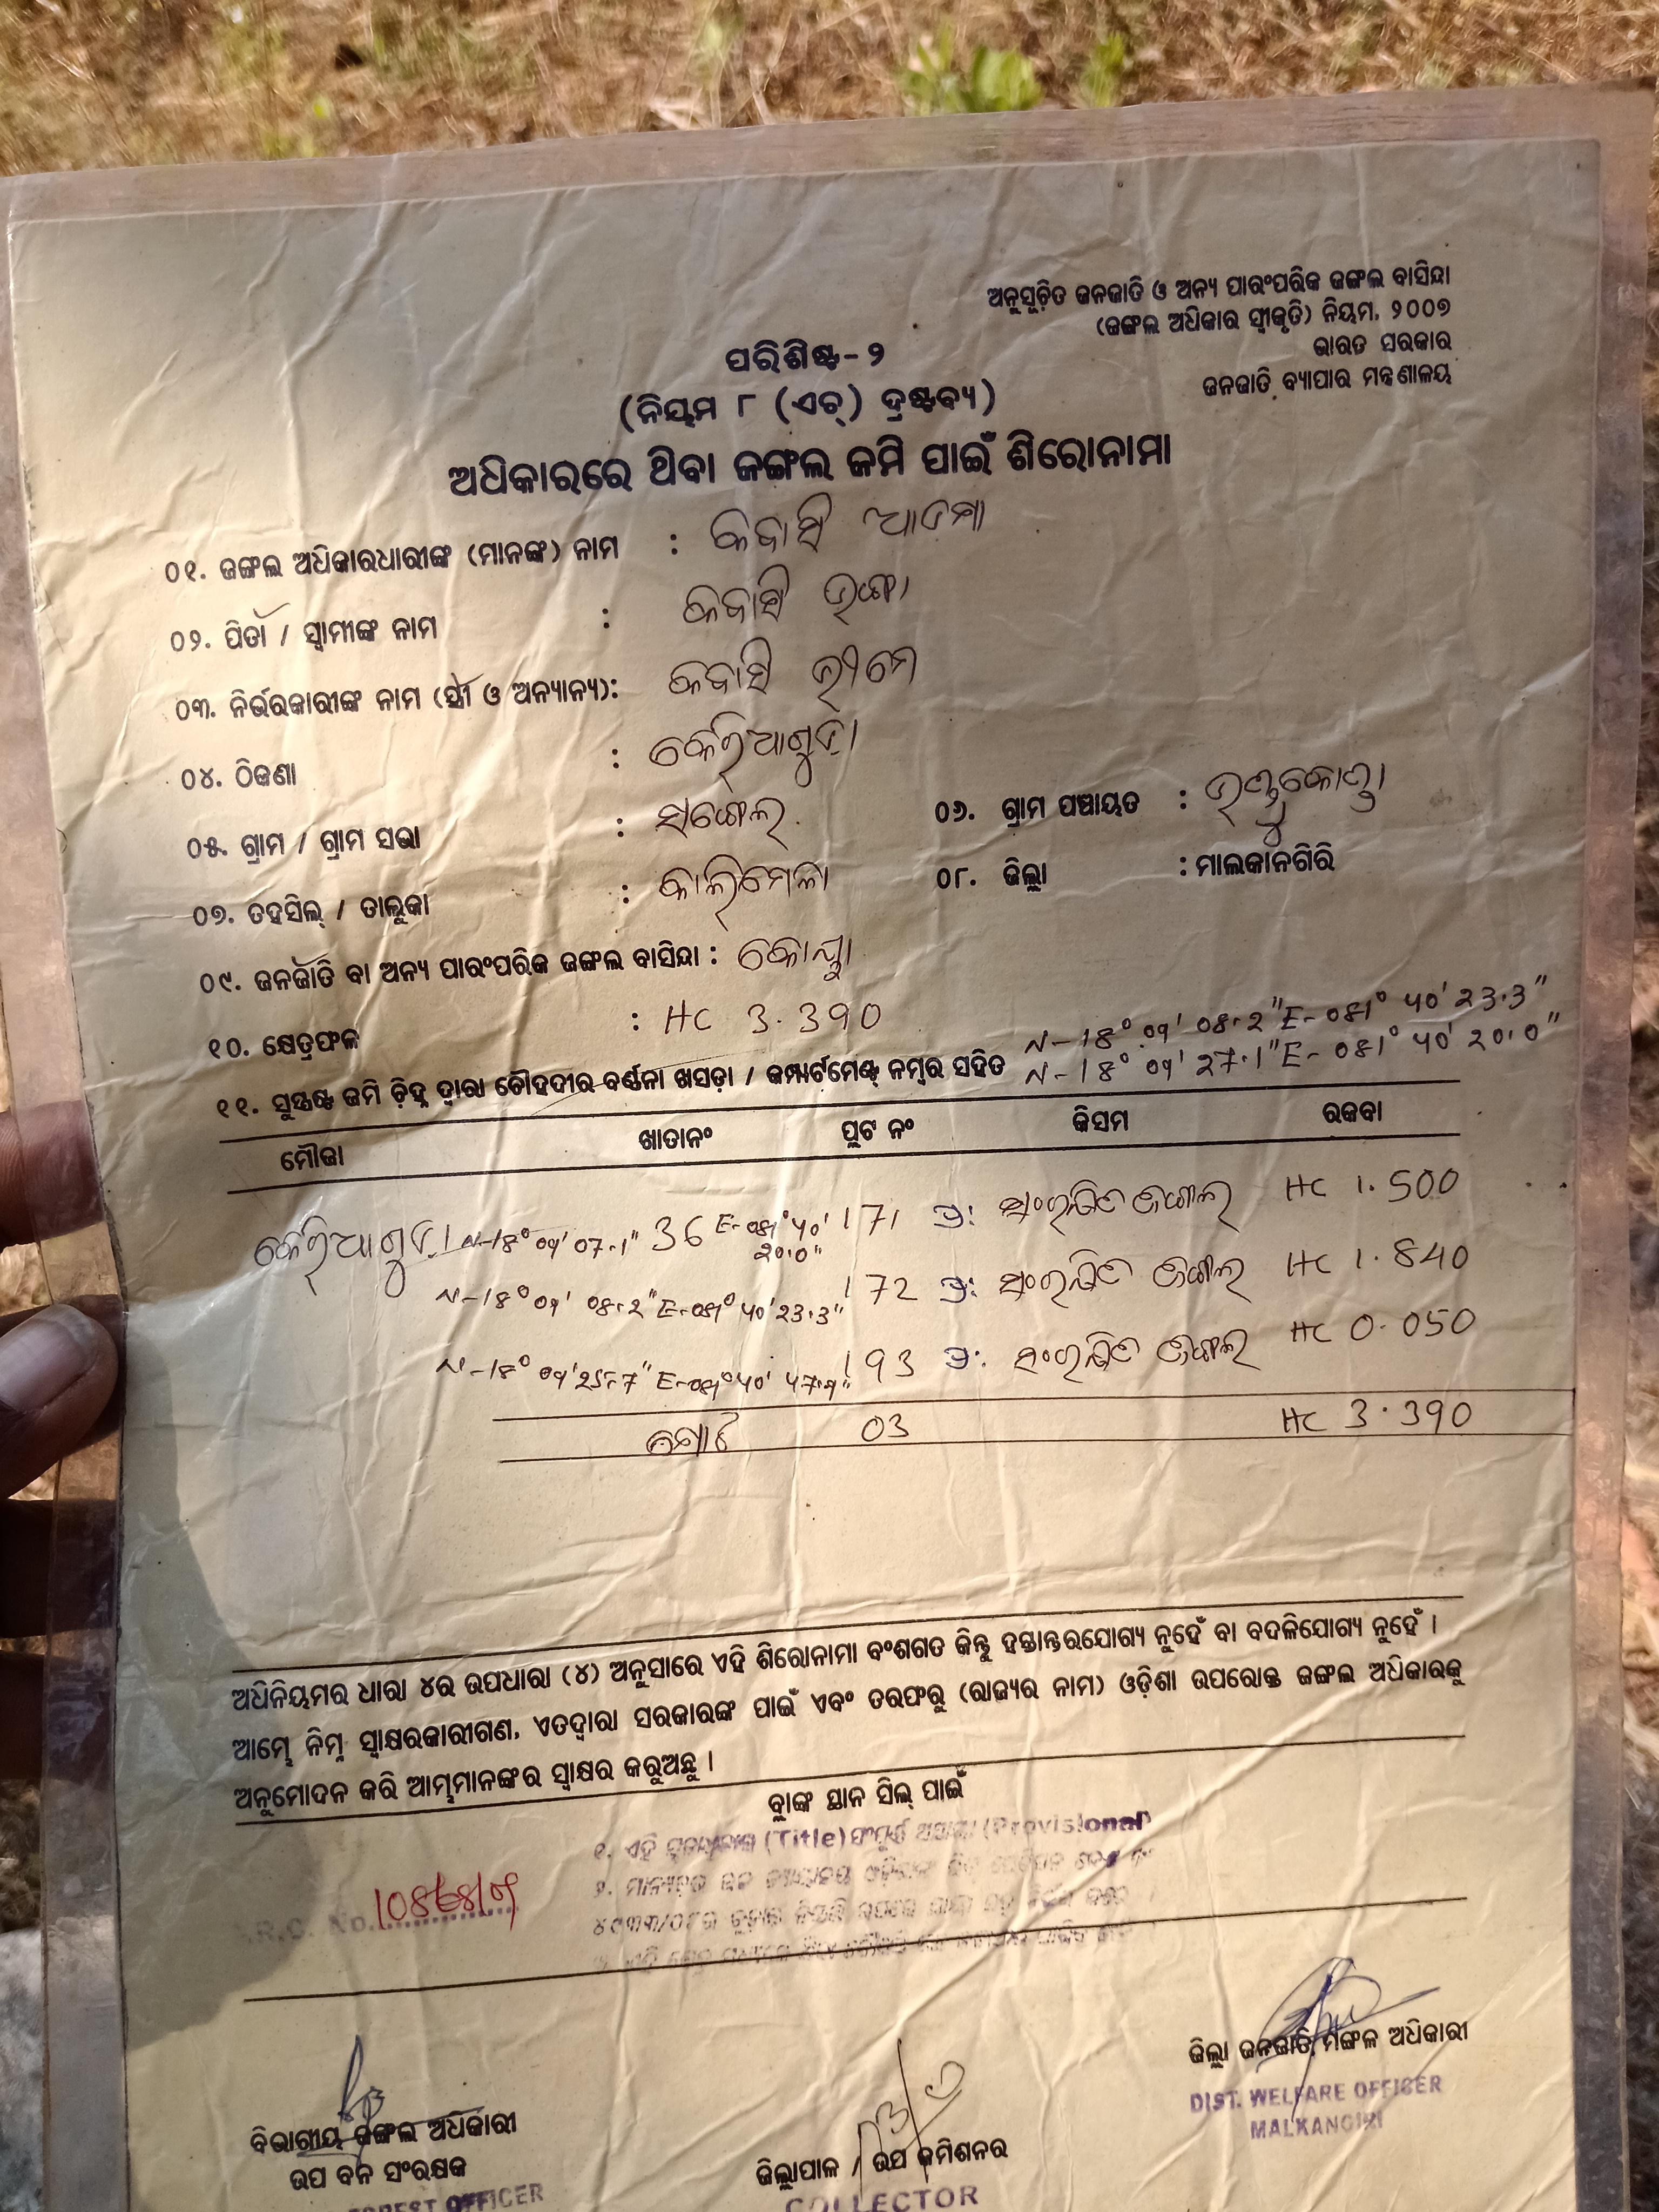 ଅନୁସୂଚିତ ଜନଜାତି ଓ ଅନ୍ୟ ପାରଂପରିକ ଜଙ୍ଗଲ ବାସିନ୍ଦା
(ଜଙ୍ଗଲ ଅଧିକାର ସ୍ୱୀକୃତି) ନିୟମ, ୨୦୦୭
ଭାରତ ସରକାର
ଜନଜାତି ବ୍ୟାପାର ମନ୍ତ୍ରଣାଳୟ
ପରିଶିଷ୍ଟ-୨
(ନିୟମ ୮ (ଏଚ୍) ଦ୍ରଷ୍ଟବ୍ୟ)
ଅଧିକାରରେ ଥିବା ଜଙ୍ଗଲ ଜମି ପାଇଁ ଶିରୋନାମା
୦୧. ଜଙ୍ଗଲ ଅଧିକାରଧାରୀଙ୍କ (ମାନଙ୍କ) ନାମ : କବାସି ଆଦମା
୦୨. ପିତା / ସ୍ୱାମୀଙ୍କ ନାମ : କବାସି
୦୩. ନିର୍ଭରକାରୀଙ୍କ ନାମ (ସ୍ତ୍ରୀ ଓ ଅନ୍ୟାନ୍ୟ): କବାସି ଭୀମେ
୦୪. ଠିକଣା :
୦୫. ଗ୍ରାମ / ଗ୍ରାମ ସଭା : ୦୬. ଗ୍ରାମ ପଞ୍ଚାୟତ :
୦୭. ତହସିଲ୍ / ତାଲୁକା : କାଲିମେଳା ୦୮. ଜିଲ୍ଲା : ମାଲକାନଗିରି
୦୯. ଜନଜାତି ବା ଅନ୍ୟ ପାରଂପରିକ ଜଙ୍ଗଲ ବାସିନ୍ଦା : କୋୟା
୧୦. କ୍ଷେତ୍ରଫଳ : HC 3.390
N-18° 09' 08.2" E-081° 40' 23.3"
୧୧. ସୁସ୍ପଷ୍ଟ ଜମି ଚିହ୍ନ ଦ୍ୱାରା ଚୌହଦୀର ବର୍ଣ୍ଣନା ଖସଡ଼ା / କମ୍ପାର୍ଟମେଣ୍ଟ୍ ନମ୍ବର ସହିତ N-18° 09' 27.1" E-081° 40' 20.0"
ମୌଜା ଖାତାନଂ ପ୍ଲଟ ନଂ କିସମ ରକବା
N-18° 09' 07.1" 36 E-081° 40' 20.0" 171 ପ୍ର: ସଂରକ୍ଷିତ ଜଙ୍ଗଲ HC 1.500
N-18° 09' 08.2" E-081° 40' 23.3" 172 ପ୍ର: ସଂରକ୍ଷିତ ଜଙ୍ଗଲ HC 1.840
193 ପ୍ର: ସଂରକ୍ଷିତ ଜଙ୍ଗଲ HC 0.050
ମୋଟ 03 HC 3.390
ଅଧିନିୟମର ଧାରା ୪ର ଉପଧାରା (୪) ଅନୁସାରେ ଏହି ଶିରୋନାମା ବଂଶଗତ କିନ୍ତୁ ହସ୍ତାନ୍ତରଯୋଗ୍ୟ ନୁହେଁ ବା ବଦଳିଯୋଗ୍ୟ ନୁହେଁ ।
ଆମ୍ଭେ ନିମ୍ନ ସ୍ୱାକ୍ଷରକାରୀଗଣ, ଏତଦ୍ୱାରା ସରକାରଙ୍କ ପାଇଁ ଏବଂ ତରଫରୁ (ରାଜ୍ୟର ନାମ) ଓଡ଼ିଶା ଉପରୋକ୍ତ ଜଙ୍ଗଲ ଅଧିକାରକୁ
ଅନୁମୋଦନ କରି ଆମ୍ଭମାନଙ୍କର ସ୍ୱାକ୍ଷର କରୁଅଛୁ ।
ବ୍ଲାଙ୍କ ସ୍ଥାନ ସିଲ୍ ପାଇଁ
୧. ଏହି (Title) ସଂପୂର୍ଣ୍ଣ (Provisional)
R.C. No.
ଜିଲ୍ଲା ଜନଜାତି ମଙ୍ଗଳ ଅଧିକାରୀ
DIST. WELFARE OFFICER
MALKANGIRI
ବିଭାଗୀୟ ଜଙ୍ଗଲ ଅଧିକାରୀ
ଉପ ବନ ସଂରକ୍ଷକ
FOREST OFFICER
ଜିଲ୍ଲାପାଳ / ଉପ କମିଶନର
COLLECTOR